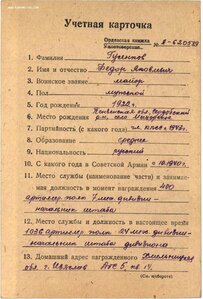 Учетная карточка
Орденская книжка
Удостоверение № З-620589
1. Фамилия Гусенков
2. Имя и отчество Федор Яковлевич
3. Воинское звание майор
4. Пол мужской
5. Год рождения 1920 г.
6. Место рождения Пензенская обл.
р-н, село
7. Партийность (с какого года) чл. КПСС с 1943 г.
8. Образование среднее
9. Национальность русский
10. С какого года в Советской Армии с 10.1940 г.
11. Место службы (наименование части) и занимае-
мая должность в момент награждения 480
артилер. полк 7 мех. дивизии-
начальник штаба
12. Место службы и должность в настоящее время
1036 артилер. полк 24 мех. дивизии-
начальник штаба дивизиона
13. Домашний адрес награжденного Хмельницкая
обл. г. Изяслав ДОС 5, кв. 14.
(См. на обороте)